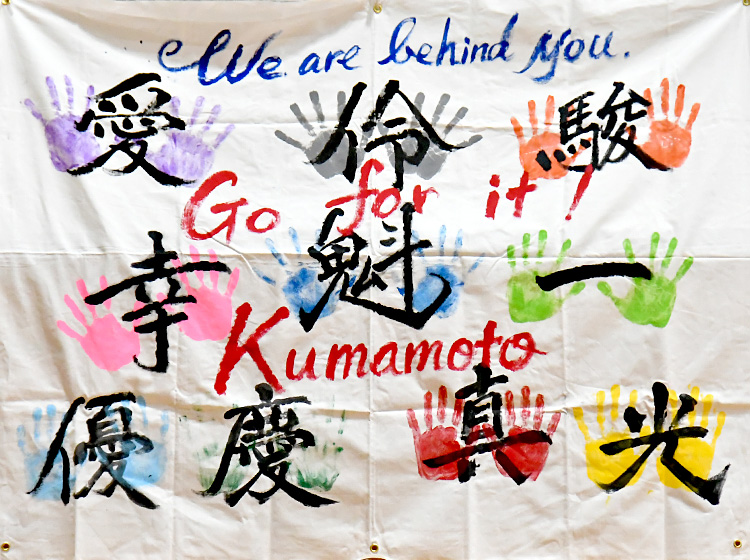 We are behind you.
愛 伶 駿
Go for it!
幸 魁 一
Kumamoto
優 慶 真 光